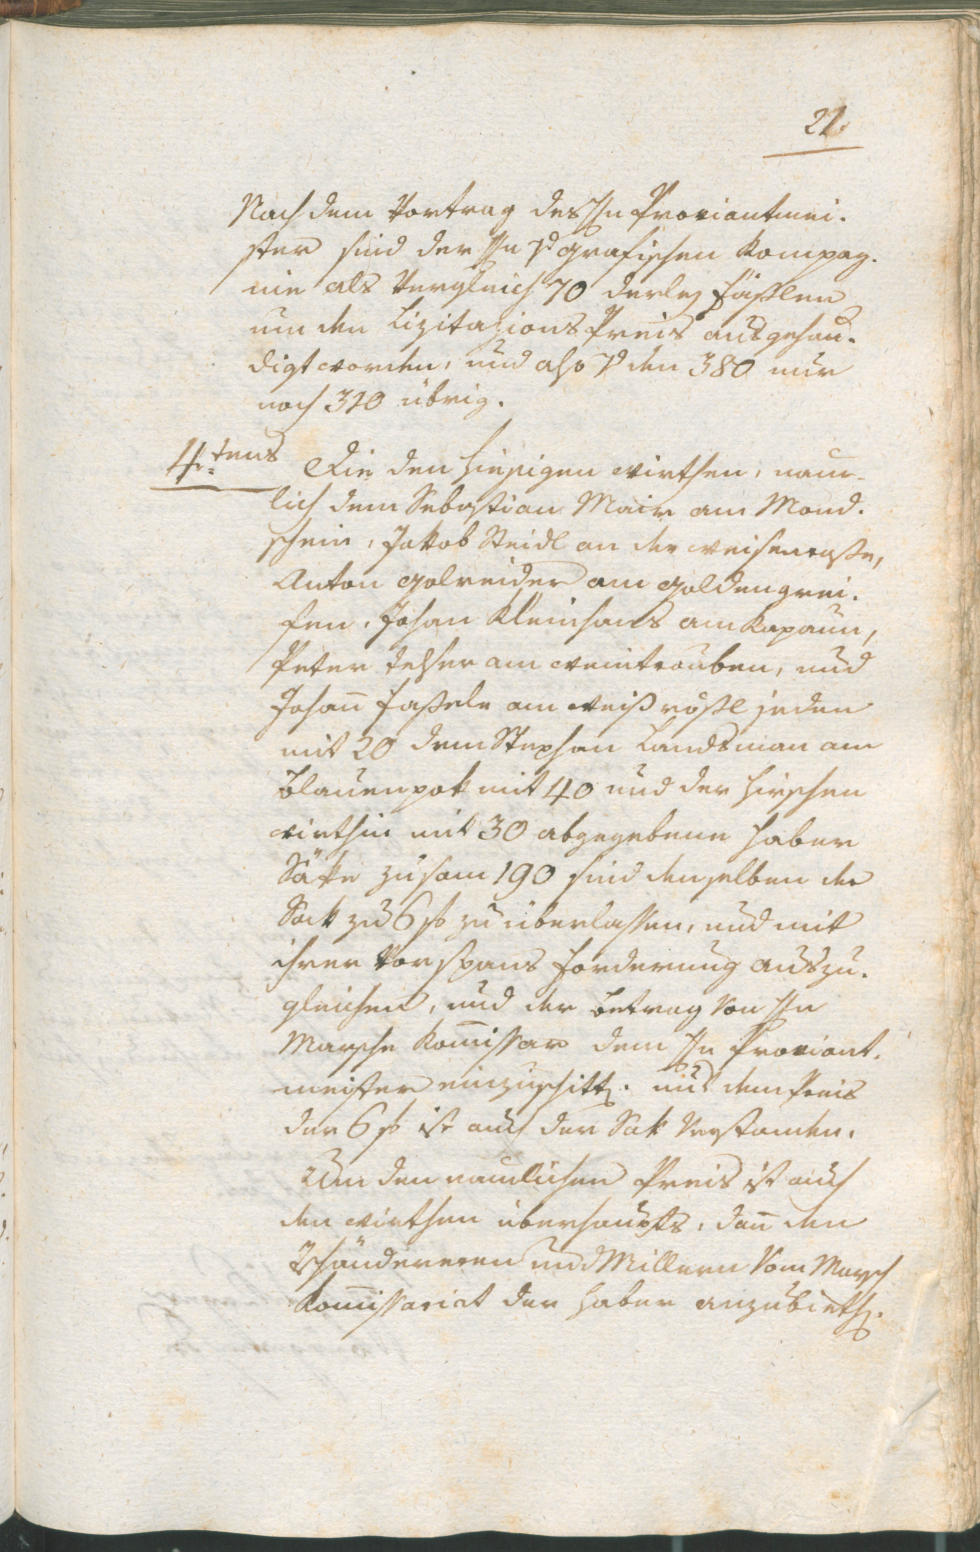 21.
Nach dem Vortrag des Hn Proviantmei-
ster sind der Hn Grafischen Kompag-
nie als Vergleich 70 derley Fäßlen
um den Lizitazions Preis ausgehän-
digt worden, und also den 380 nur
noch 310 übrig.
4tens Die den hiesigen Wirthen, näm-
lich dem Sebastian Mair am Mond-
schein, Jakob Steidl an der Weisenroße,
Anton Golreider am Goldengrei-
fen, Johan Kleinhans am Kapaun,
Peter Telser am Weintrauben, und
Johañ Faßele am Weißrößl jeden
mit 20 dem Stephan Landsman am
Blauenpok mit 40 und der Hirschen
wirthin mit 30 abgegebene Haber
Säke zusam 190 sind denselben der
Sak zu 6 f zu überlassen, und mit
ihrer Vorspans Forderung auszu-
gleichen, und der Betrag von Hn
Marsche Komissar dem Hn Proviant-
meister einzuschikk. mit dem Preis
der 6 f ist auch der Sak Verstanden.
Um den nämlichen Preis ist auch
den Wirthen überhaupts, dañ den
und Millern Vom Marsch
Komissariat der Haber anzubieth.